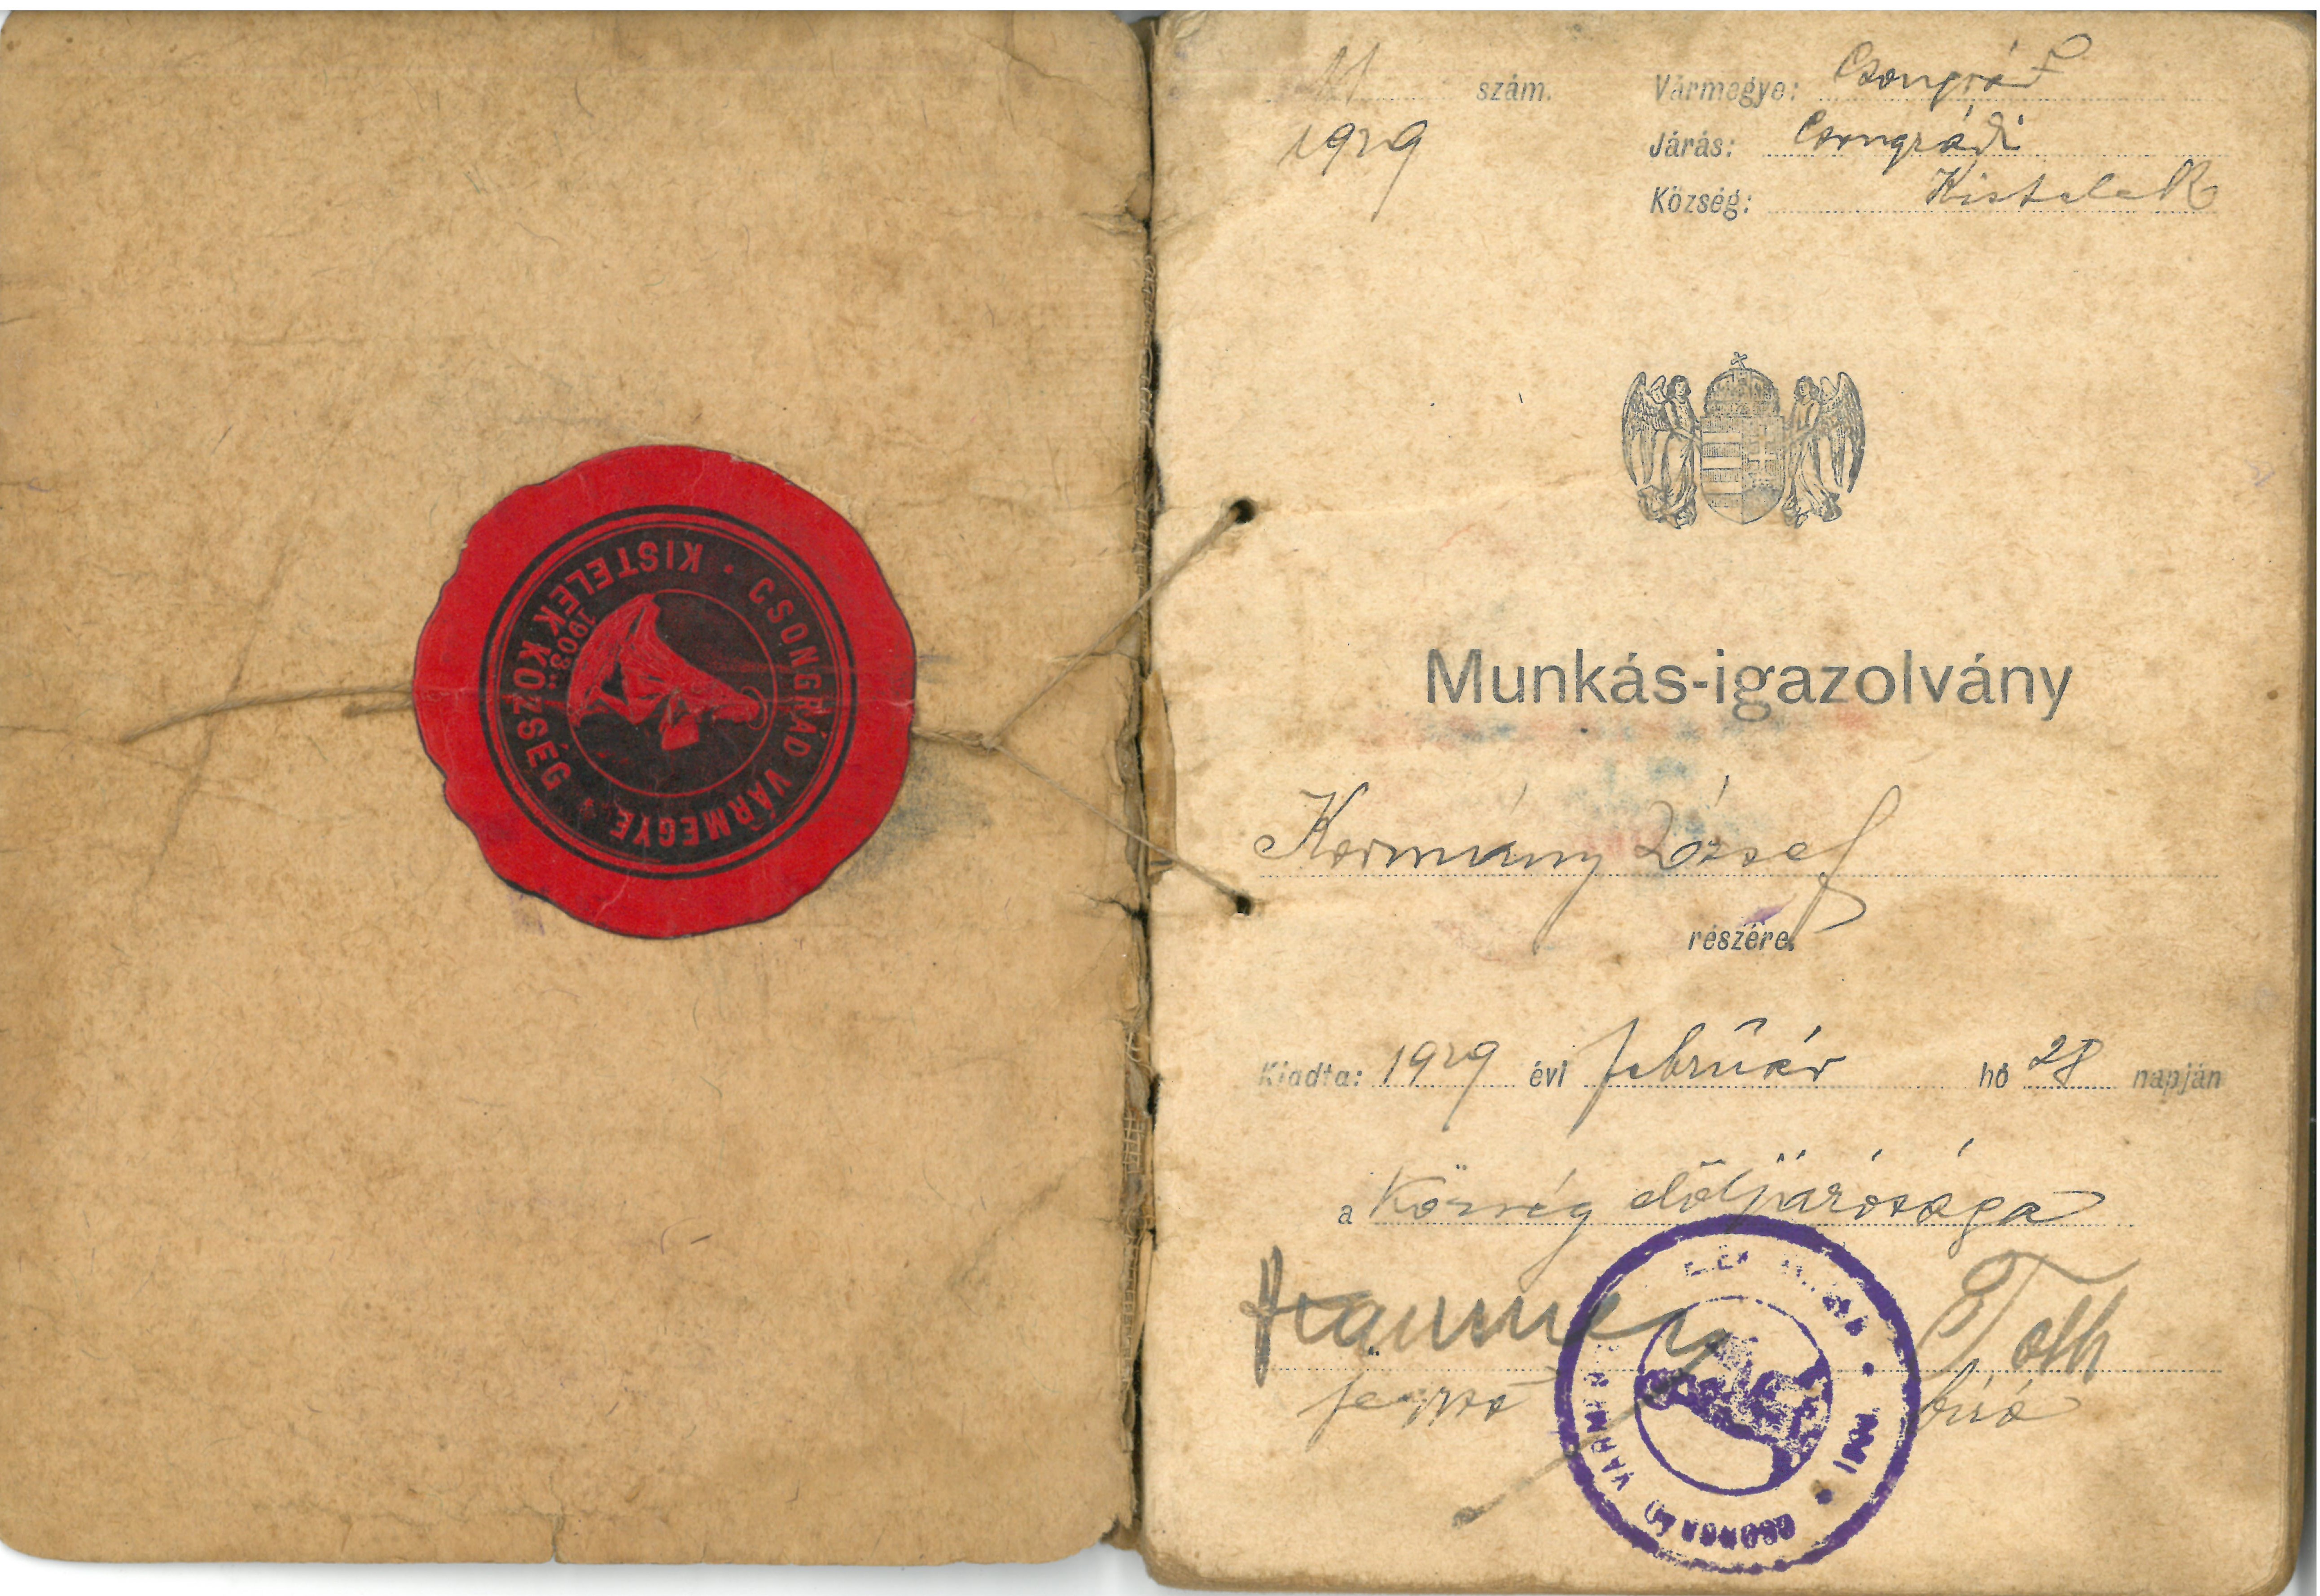 KISTELEK KÖZSÉG * CSONGRÁD VÁRMEGYE
1903.
szám. Vármegye: Csongrád
1929 Járás: Csongrádi
Község: Kistelek
Munkás-igazolvány
Kormány József
részére.
Kiadta: 1929 évi február hó 28 napján
a Község elöljárósága
Tóth
jegyző bíró
CSONGRÁD VÁRM